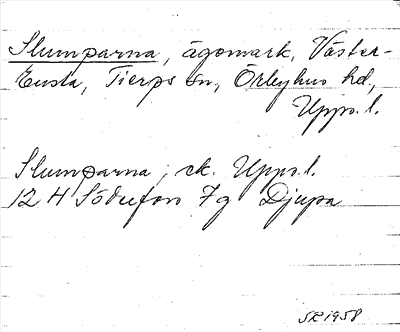 Slumparna, ägomark, Väster-
Ensta, Tierps sn, Örbyhus hd,
Upps. l.
Slumparna, ek. Upps. l.
12 H Söderfors 7g Djupa
SR 1958